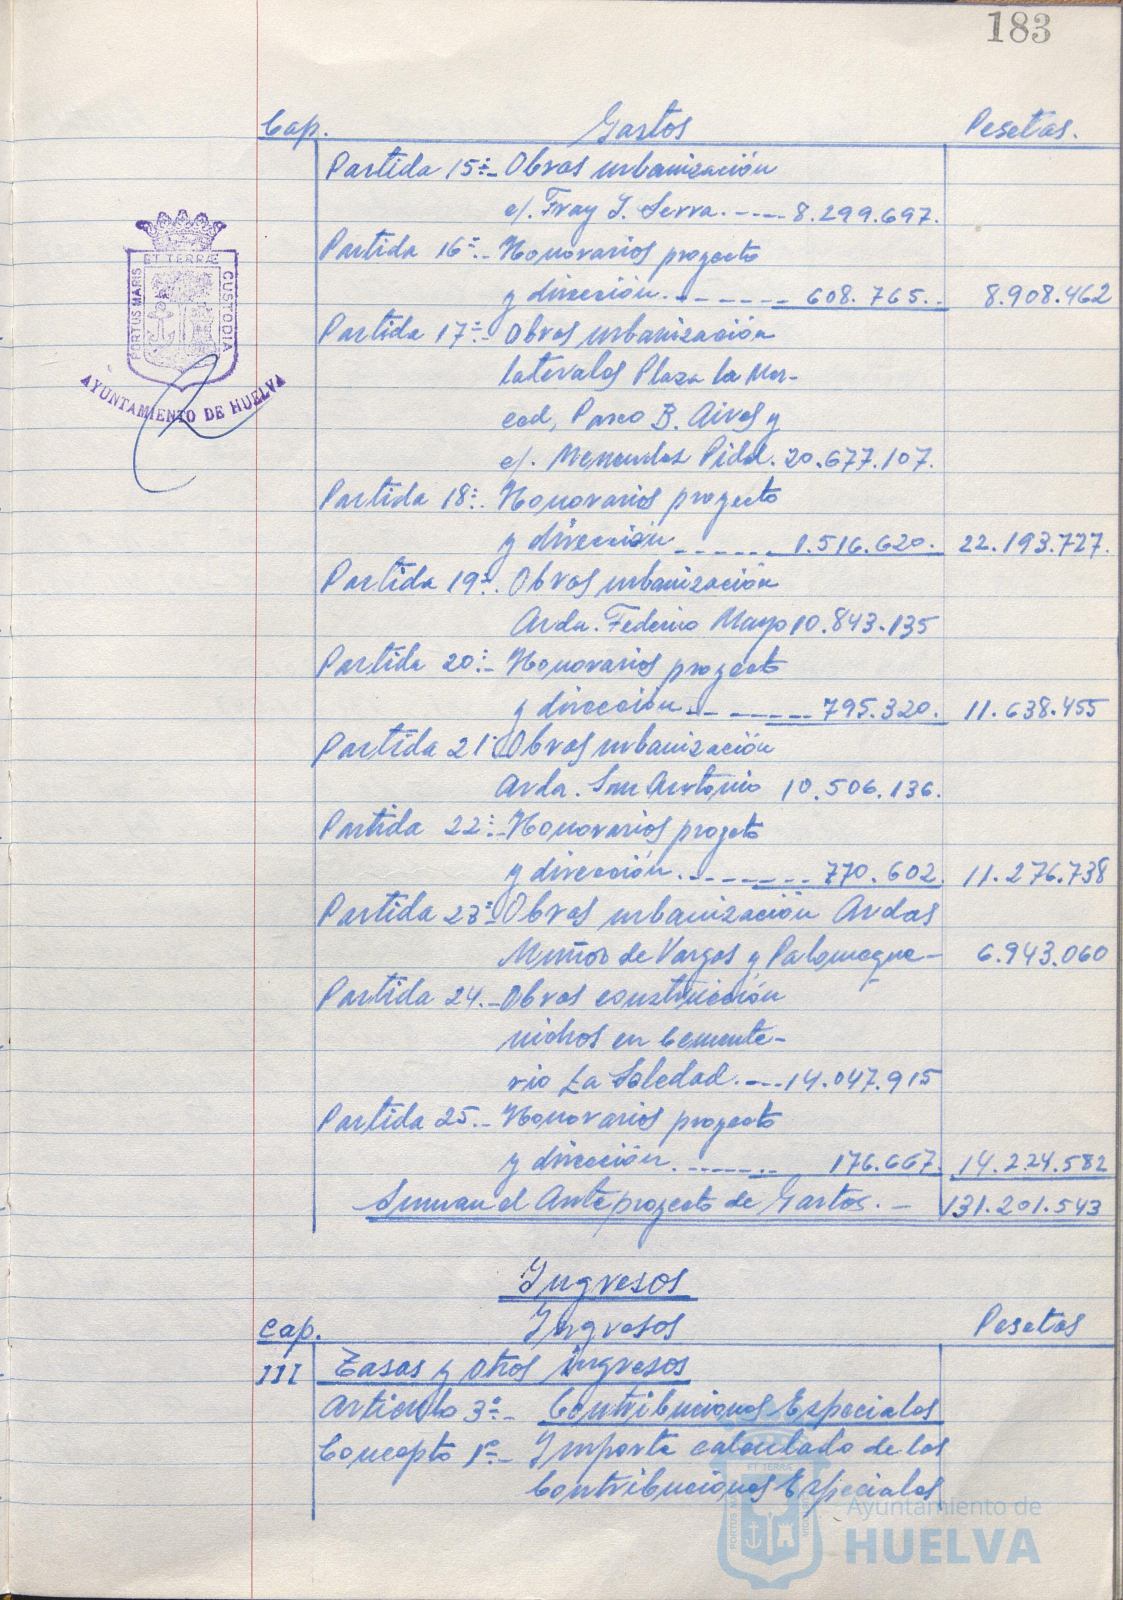 183
Cap. Gastos Pesetas.
Partida 15ª.- Obras urbanización
c/. Fray J. Serra. ---- 8.299.697.
Partida 16ª.- Honorarios proyecto
y dirección. ------- 608.765.. 8.908.462
Partida 17ª.- Obras urbanización
laterales Plaza la Mer-
ced, Paseo B. Aires y
c/. Menendez Pidal. 20.677.107.
Partida 18ª. Honorarios proyecto
y dirección ------ 1.516.620. 22.193.727.
Partida 19ª. Obras urbanización
Avda. Federico Mayo 10.843.135
Partida 20ª.- Honorarios proyecto
y dirección.-- ----- 795.320. 11.638.455
Partida 21ª. Obras urbanización
Avda. San Antonio 10.506.136.
Partida 22ª.- Honorarios proyeto
y dirección. ------- 770.602. 11.276.738
Partida 23ª Obras urbanización Avdas
Muñoz de Vargas y Palomeque- 6.943.060
Partida 24.- Obras construcción
nichos en Cemente-
rio La Soledad. --- 14.047.915
Partida 25.- Honorarios proyecto
y dirección. ------- 176.667. 14.224.582
Suman el Anteproyecto de Gastos. - 131.201.543
Ingresos
Cap. Ingresos Pesetas
III Tasas y otros ingresos
Artículo 3º.- Contribuciones Especiales
Concepto 1º.- Importe calculado de las
Contribuciones Especiales
PORTUS MARIS ET TERRÆ CUSTODIA
AYUNTAMIENTO DE HUELVA
Ayuntamiento de
HUELVA